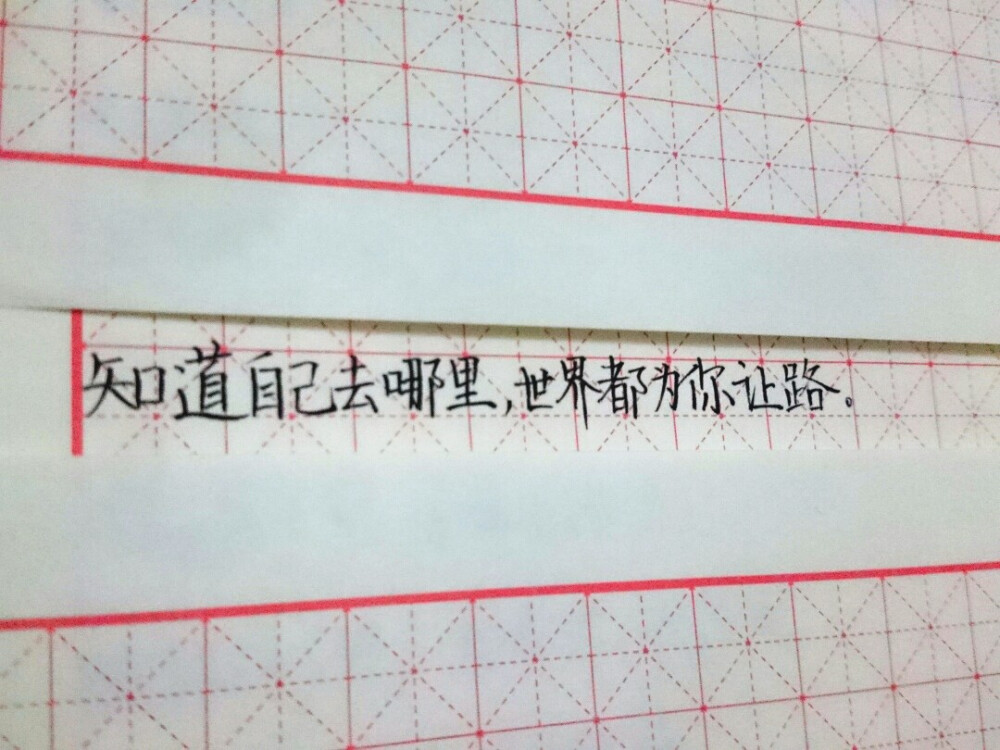 知道自己去哪里,世界都为你让路。